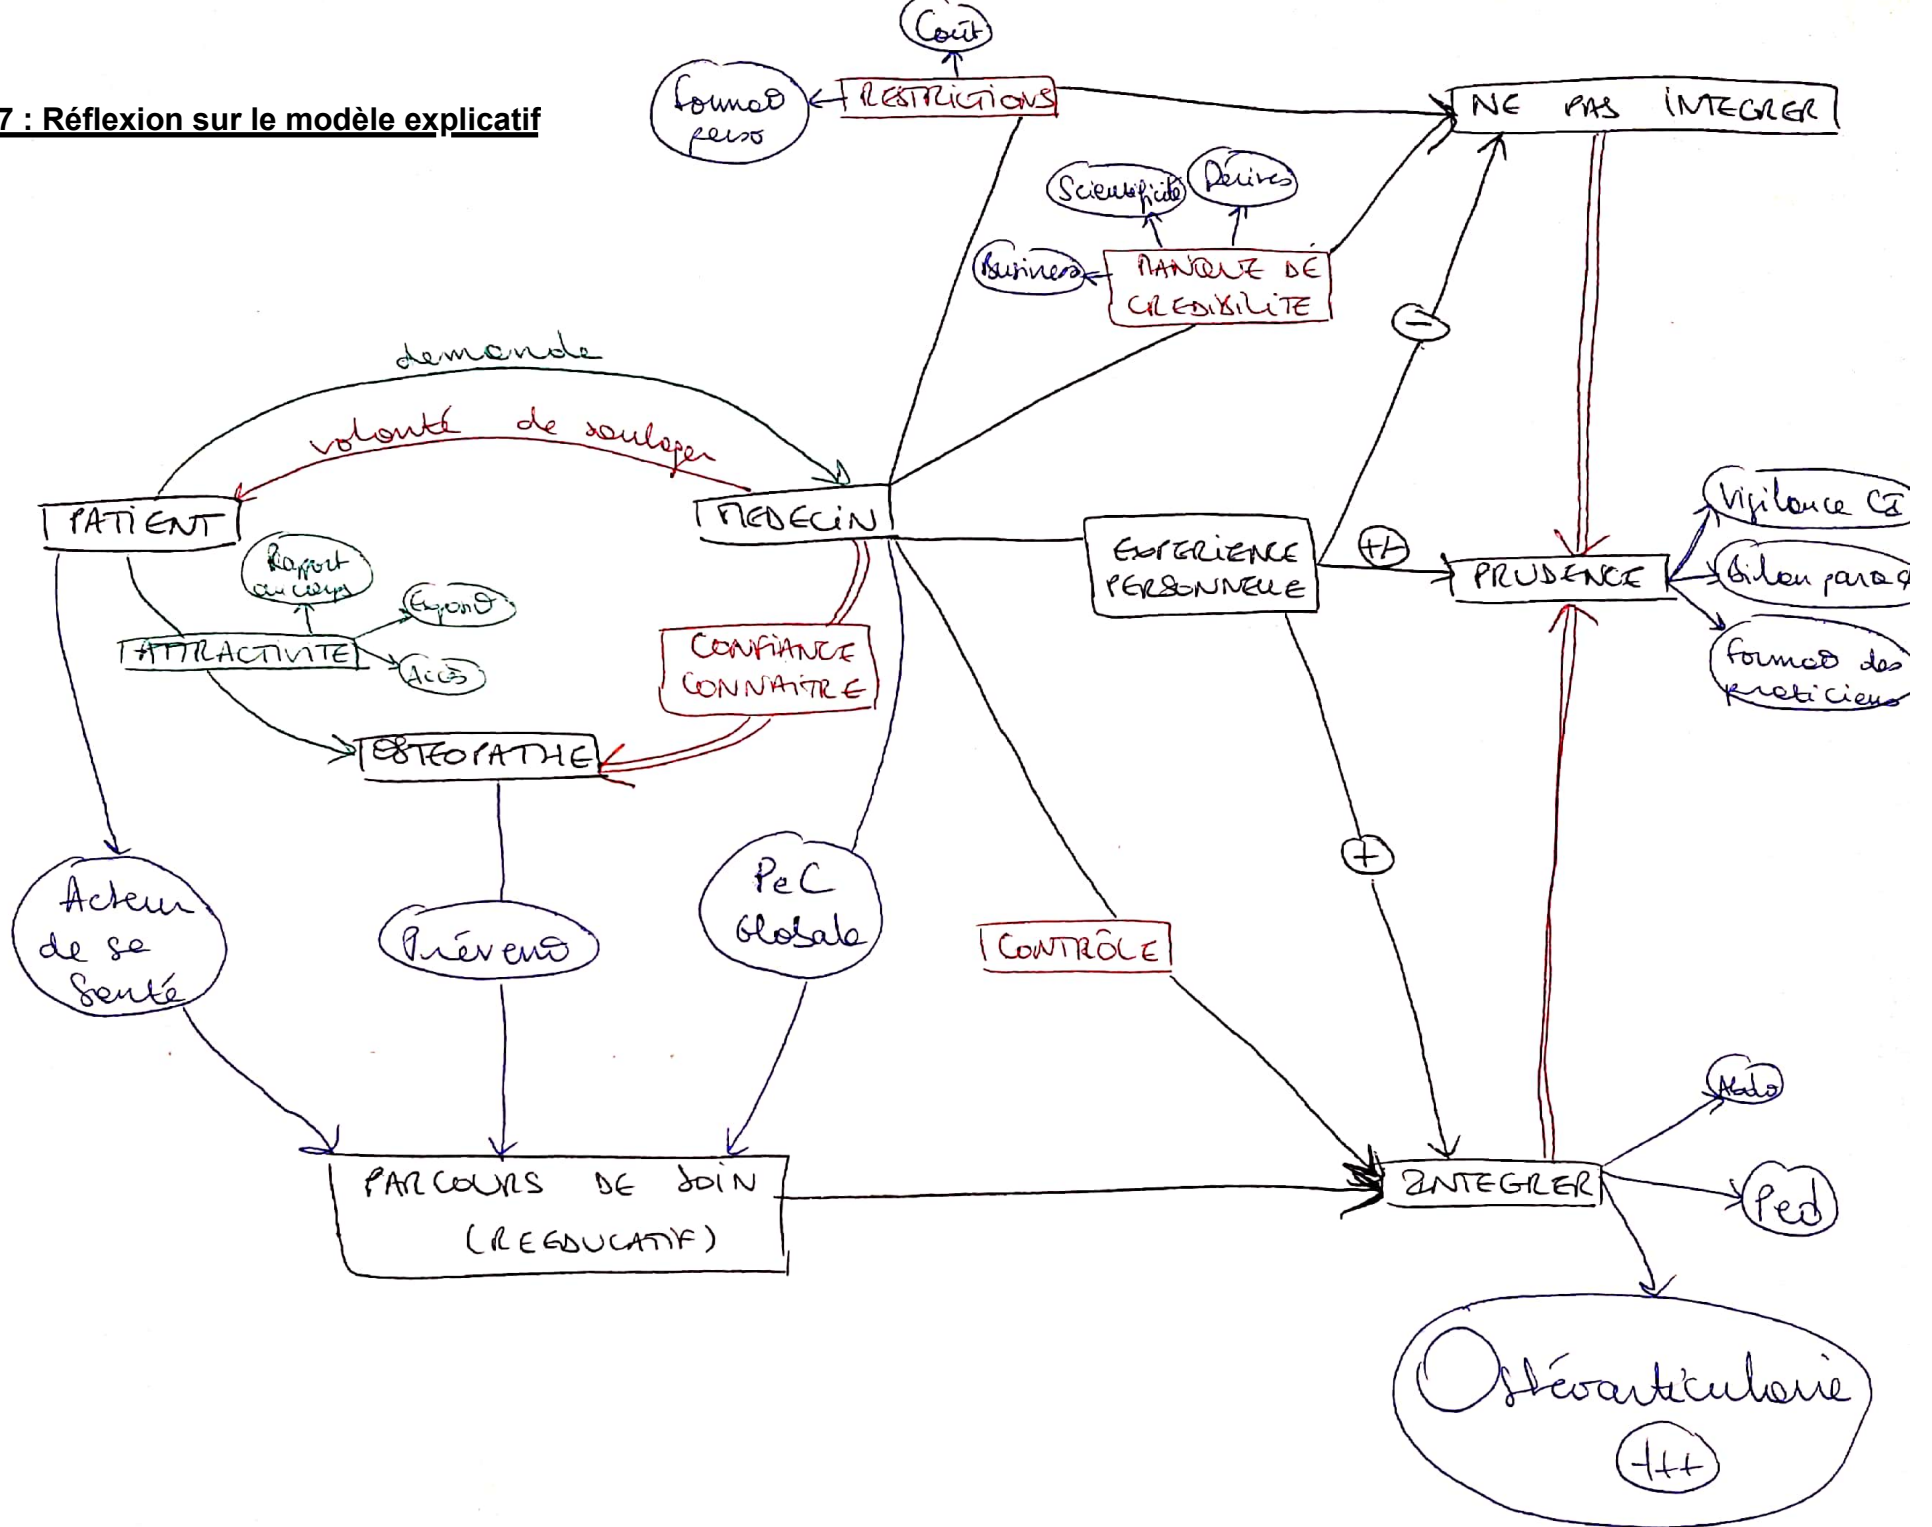 7 : Réflexion sur le modèle explicatif
Coût
Formaθ
perso
RESTRICTIONS
NE PAS INTEGRER
Scientificité
Dérives
Business
MANQUE DE
CREDIBILITE
demande
volonté de soulager
PATIENT
MEDECIN
Rapport
au corps
Exponθ
ATTRACTIVITE
Accès
CONFIANCE
CONNAÎTRE
OSTEOPATHE
EXPERIENCE
PERSONNELLE
-
+/-
PRUDENCE
Vigilance CI
Bilan para
Formaθ des
praticiens
Acteur
de sa
Santé
Prévenθ
PeC
Globale
CONTRÔLE
+
PARCOURS DE SOIN
(REEDUCATIF)
INTEGRER
Abdo
Ped
Ostéoarticulaire
+++